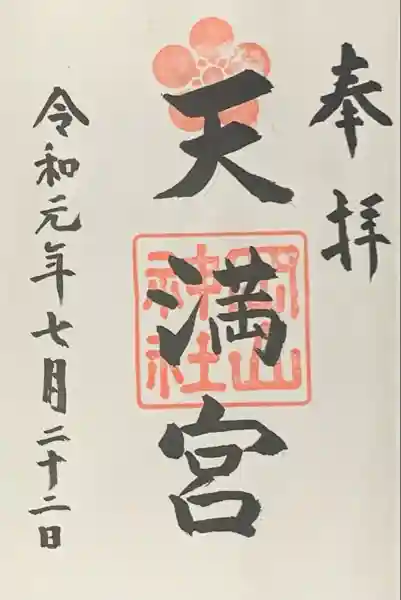 奉拝
天満宮
岡山
神社
令和元年七月二十二日